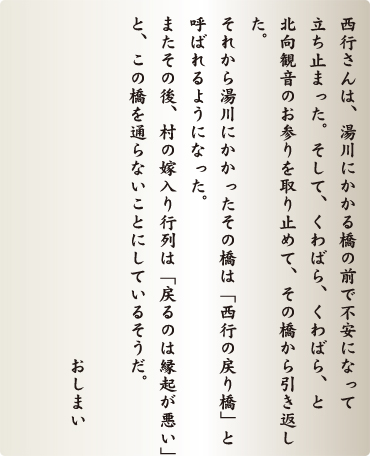 西行さんは、湯川にかかる橋の前で不安になって
立ち止まった。そして、くわばら、くわばら、と
北向観音のお参りを取り止めて、その橋から引き返し
た。
それから湯川にかかったその橋は「西行の戻り橋」と
呼ばれるようになった。
またその後、村の嫁入り行列は「戻るのは縁起が悪い」
と、この橋を通らないことにしているそうだ。
おしまい